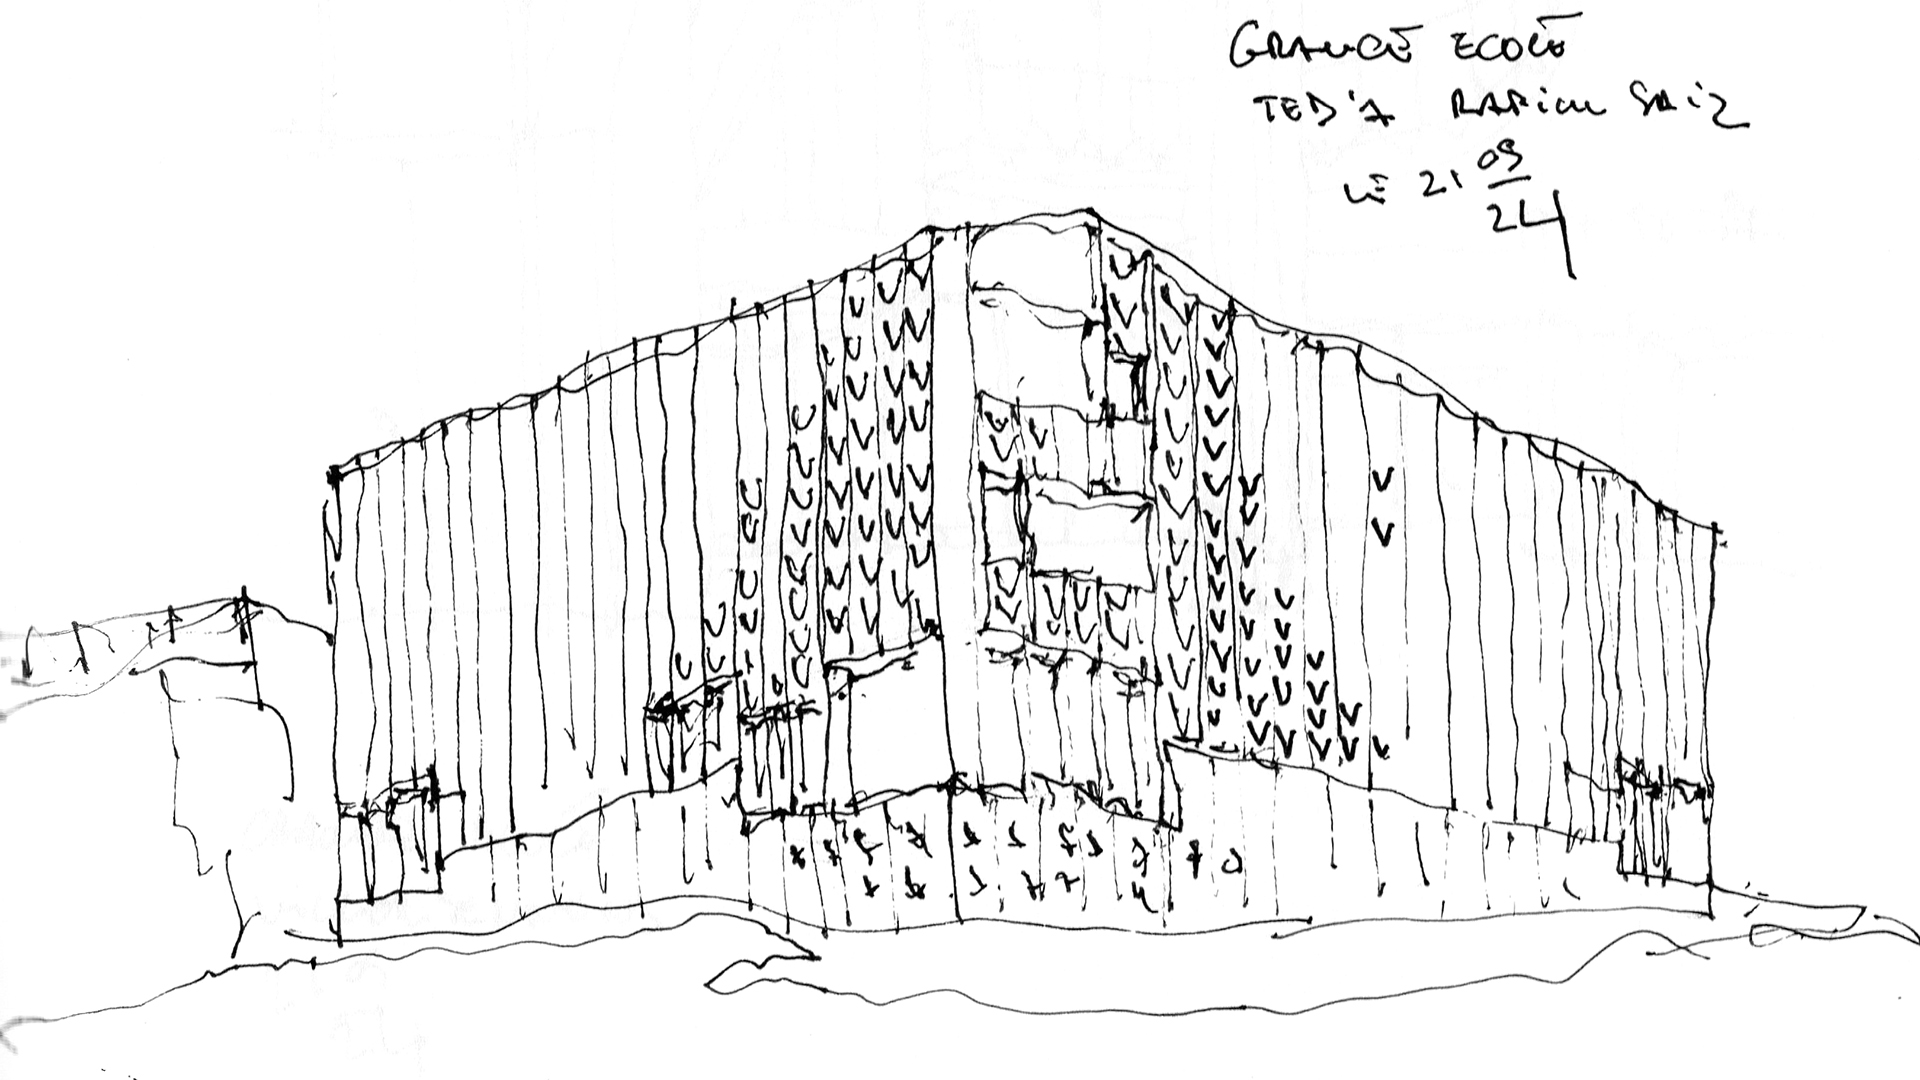 GRANDE ECOLE
TED'A RAPIN SAIZ
LE 21 09
24